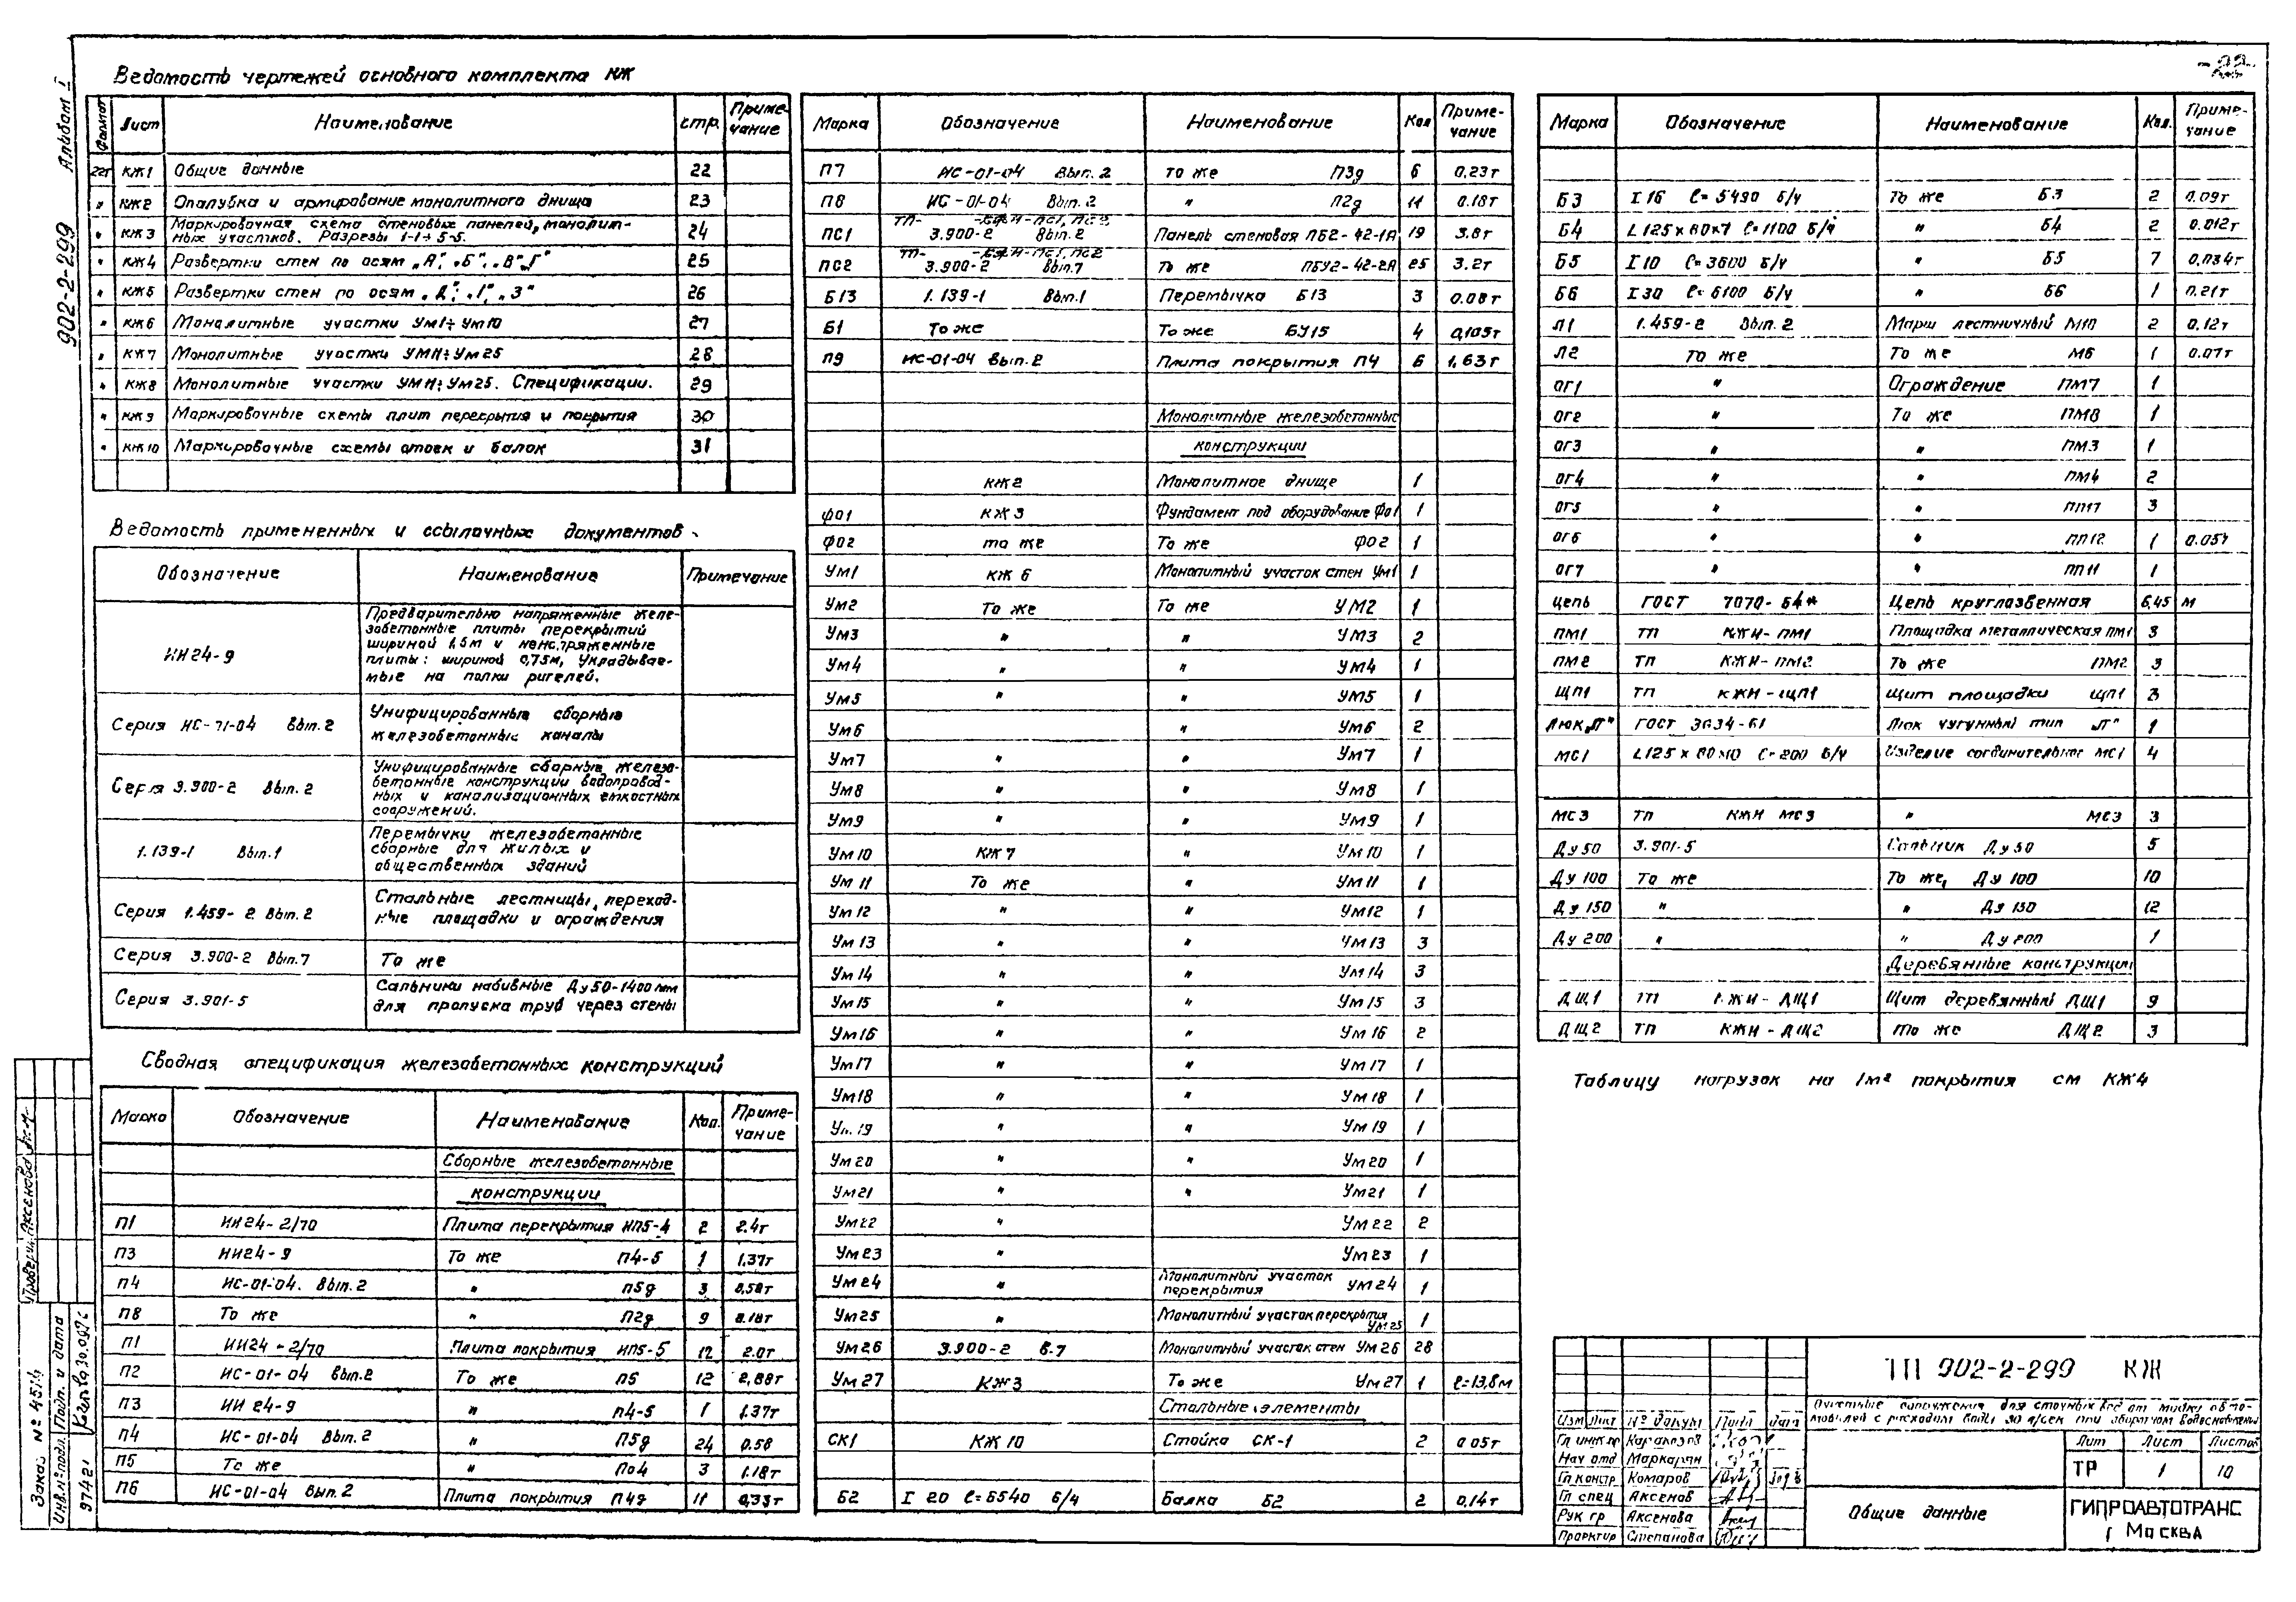 -22-
Альбом I
902-2-299
Ведомость чертежей основного комплекта КЖ
Формат Лист Наименование стр. Приме-
чание
22г КЖ1 Общие данные 22
" КЖ2 Опалубка и армирование монолитного днища 23
" КЖ3 Маркировочная схема стеновых панелей, монолит-
ных участков. Разрезы 1-1÷5-5. 24
" КЖ4 Развертки стен по осям „А", „Б", „В", „Г" 25
" КЖ5 Развертки стен по осям „Д", „1", „3" 26
" КЖ6 Монолитные участки Ум1÷Ум10 27
" КЖ7 Монолитные участки УМ11÷Ум25 28
" КЖ8 Монолитные участки УМ11÷Ум25. Спецификации. 29
" КЖ9 Маркировочные схемы плит перекрытия и покрытия 30
" КЖ10 Маркировочные схемы стоек и балок 31
Ведомость примененных и ссылочных документов
Обозначение Наименование Примечание
ИИ24-9 Предварительно напряженные желе-
зобетонные плиты перекрытий
шириной 1,5м и ненапряженные
плиты: шириной 0,75м, укладывае-
мые на полки ригелей.
Серия ИС-01-04 Вып.2 Унифицированные сборные
железобетонные каналы
Серия 3.900-2 Вып.2 Унифицированные сборные железо-
бетонные конструкции водопровод-
ных и канализационных емкостных
сооружений.
1.139-1 Вып.1 Перемычки железобетонные
сборные для жилых и
общественных зданий
Серия 1.459-2 Вып.2 Стальные лестницы, переход-
ные площадки и ограждения
Серия 3.900-2 Вып.7 То же
Серия 3.901-5 Сальники набивные Ду50-1400мм
для пропуска труб через стены
Сводная спецификация железобетонных конструкций
Марка Обозначение Наименование Кол. Приме-
чание
Сборные железобетонные
конструкции
П1 ИИ24-2/70 Плита перекрытия ИП5-4 2 2.4т
П3 ИИ24-9 То же П4-5 1 1.37т
П4 ИС-01-04. Вып.2 " П5g 3 0,58т
П8 То же " П2g 9 0.18т
П1 ИИ24-2/70 Плита покрытия ИП5-5 12 2.0т
П2 ИС-01-04 Вып.2 То же П5 12 2,88т
П3 ИИ 24-9 " П4-5 1 1.37т
П4 ИС-01-04 Вып.2 " П5g 24 0.58
П5 То же " По4 3 1.18т
П6 ИС-01-04 Вып.2 Плита покрытия П4g 11 0,33т
Марка Обозначение Наименование Кол Приме-
чание
П7 ИС-01-04 Вып.2 То же П3g 6 0,23т
П8 ИС-01-04 Вып.2 " П2g 11 0.18т
ПС1 ТП- -КЖИ-ПС1, ПС2
3.900-2 Вып.2 Панель стеновая ПБ2-42-1А 19 3.8т
ПС2 ТП- -КЖИ-ПС1, ПС2
3.900-2 Вып.7 То же ПБУ2-42-2А 25 3.2т
Б13 1.139-1 Вып.1 Перемычка Б13 3 0.08т
Б1 То же То же БУ15 4 0,105т
П9 ИС-01-04 Вып.2 Плита покрытия П4 6 1,63т
Монолитные железобетонные
конструкции
КЖ2 Монолитное днище 1
ФО1 КЖ3 Фундамент под оборудование ФО1 1
ФО2 то же То же ФО2 1
Ум1 КЖ 6 Монолитный участок стен Ум1 1
Ум2 То же То же УМ2 1
Ум3 " " УМ3 2
Ум4 " " УМ4 1
Ум5 " " УМ5 1
Ум6 " Ум6 2
Ум7 " " Ум7 1
Ум8 " " Ум8 1
Ум9 " " Ум9 1
Ум10 КЖ7 " Ум10 1
Ум 11 То же " Ум11 1
Ум12 " " Ум12 1
Ум13 " " Ум13 3
Ум14 " " Ум14 3
Ум15 " " Ум15 3
Ум16 " " Ум16 2
Ум17 " " Ум17 1
Ум18 " " Ум18 1
Ум19 " " Ум19 1
Ум20 " " Ум20 1
Ум21 " " Ум21 1
Ум22 " Ум22 2
Ум23 " Ум23 1
Ум24 " Монолитный участок
перекрытия Ум24 1
Ум25 " Монолитный участок перекрытия
Ум25 1
Ум26 3.900-2 в.7 Монолитный участок стен Ум26 28
Ум27 КЖ3 То же Ум27 1 ℓ=13,8м
Стальные элементы
СК1 КЖ10 Стойка СК-1 2 0.05т
Б2 I 20 ℓ=5540 б/ч Балка Б2 2 0,14т
Марка Обозначение Наименование Кол. Приме-
чание
Б3 I 16 ℓ=5490 б/ч То же Б3 2 0.09т
Б4 L125х80х7 ℓ=1100 б/ч " Б4 2 0.012т
Б5 I 10 ℓ=3600 б/ч " Б5 7 0,034т
Б6 I 30 ℓ=6100 б/ч " Б6 1 0.21т
Л1 1.459-2 Вып.2 Марш лестничный М10 2 0,12т
Л2 То же То же М6 1 0.07т
ОГ1 " Ограждение ПМ7 1
ОГ2 " То же ПМ8 1
ОГ3 " " ПМ3 1
ОГ4 " " ПМ4 2
ОГ5 " " ПП17 3
ОГ6 " " ПП12 1 0.05т
ОГ7 " " ПП11 1
цепь ГОСТ 7070-54* Цепь круглозвенная 6,45 м
ПМ1 ТП КЖИ-ПМ1 Площадка металлическая ПМ1 3
ПМ2 ТП КЖИ-ПМ2 То же ПМ2 3
ЩП1 ТП КЖИ-ЩП1 Щит площадки ЩП1 3
Люк „Л" ГОСТ 3634-61 Люк чугунный тип „Л" 1
МС1 L125х80х10 ℓ=200 б/ч Изделие соединительное МС1 4
МС3 ТП КЖИ МС3 " МС3 3
Ду50 3.901-5 Сальник Ду50 5
Ду 100 То же То же, Ду 100 10
Ду 150 " " Ду 150 12
Ду 200 " " Ду 200 1
Деревянные конструкции
ДЩ1 ТП КЖИ-ДЩ1 Щит деревянный ДЩ1 9
ДЩ2 ТП КЖИ-ДЩ2 то же ДЩ2 3
Таблицу нагрузок на 1м² покрытия см КЖ4
ТП 902-2-299 КЖ
Очистные сооружения для сточных вод от мойки авто-
мобилей с расходом воды 30 л/сек при оборотном водоснабжении
Изм Лист № докум Подп дата
Гл инж пр
Нач отд Маркарян
Гл констр Комаров
Гл спец Аксенов
Рук гр Аксенова
Проектир Степанова
Лит Лист Листов
ТР 1 10
Общие данные
ГИПРОАВТОТРАНС
г Москва
Проверил Аксенова
Заказ №
Инв.№ подл. Подп. и дата
97421